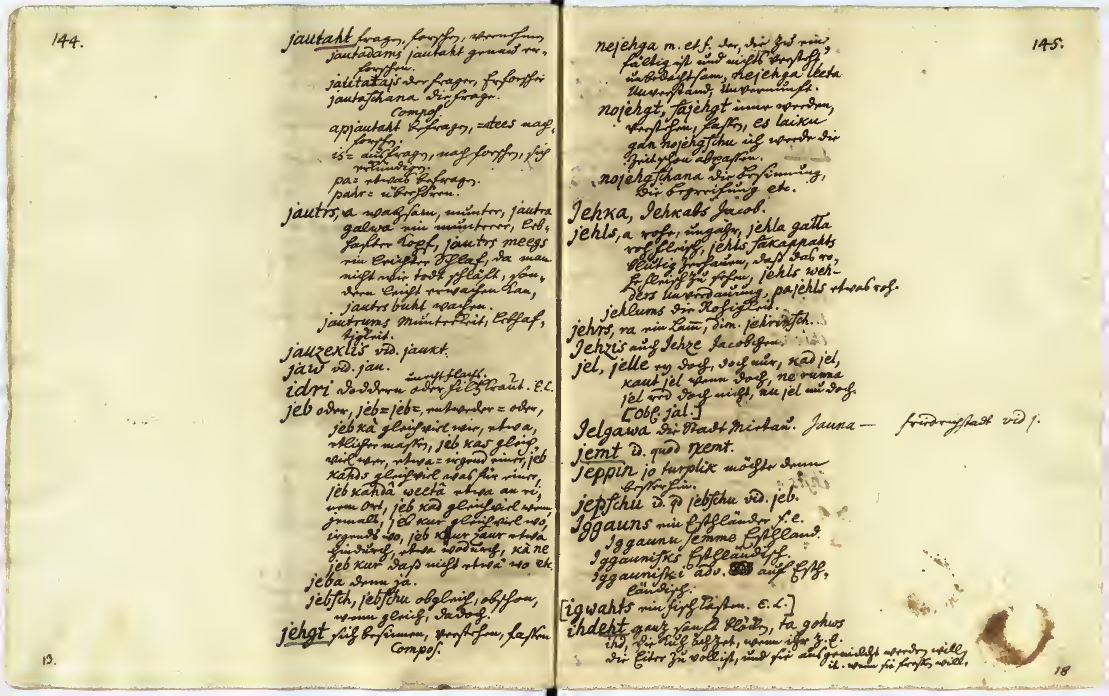 144.
jautaht fragen, forschen, vernehmen
jautadams jautaht genau er-
forschen.
jautatajs der Frager, Erforscher
jautaschana die Frage.
Compos.
apjautaht befragen, =atees nach-
forschen.
is= ausfragen, nachforschen, sich
erkundigen.
pa= etwas befragen.
pahr= überhören.
jautrs, a wachsam, munter, jautra
galwa ein munterer, leb-
hafter Kopf, jautrs meegs
ein leichter Schlaf, da man
nicht wie todt schläft, son-
dern leicht erwachen kan,
jautrs buht wachen.
jautrums Munterkeit, Lebhaf-
tigkeit.
jauzeklis vid. jaukt.
jaw vid. jau.
unecht Flachs.
idri doddern oder Filzkraut. E.L.
jeb oder, jeb=jeb=, entweder=oder,
jeb kà gleichviel wie, etwa,
etlicher maßen, jeb kas gleich
viel wer, etwa=irgend einer, jeb
kahds gleichviel was für einer,
jeb kahdà weetà etwa an ei-
nem Ort, jeb kad gleichviel wenn,
jemals, jeb kur gleichviel wo,
irgends wo, jeb kur zaur etwa
hindurch, etwa wodurch, ka ne
jeb kur daß nicht etwa wo etc.
jeba denn ja.
jebsch, jebschu obgleich, obschon,
wenn gleich, dadoch.
jehgt sich besinnen, verstehen, fassen
Compos.
13.
145.
nejehga m. et f. der, die zu ein-
fältig ist und nichts versteht,
unbedachtsam, nejehga leeta
Unverstand, Unvernunft.
nojehgt, sajehgt inne werden,
verstehen, fassen, es laiku
gan nojehgschu ich werde die
Zeit schon abpassen.
nojehgschana die Besinnung,
die Begreifung etc.
Jehka, Jehkabs Jacob.
jehls, a rohe, ungahr, jehla galla
roh Fleisch, jehls sakappahts
blutig zerhauen, daß das ro-
he Fleisch zu sehen, jehls weh-
ders Unverdauung, pajehls etwas roh.
jehlums die Rohigkeit.
jehrs, ra ein Lamm, dim. jehrinsch.
Jehzis auch Jehze Jacobchen.
jel, jelle ey doch, doch nur, kad jel,
kaut jel wenn doch, ne runna
jel red doch nicht, nu jel nu doch.
[Obl. jal.]
Jelgawa die Stadt Mietau. Jauna — Friedrichstadt vid J.
jemt id. quod ņemt.
jeppin jo turplik möchte denn
besser hin.
jepschu id. qd jebschu vid. jeb.
Iggauns ein Esthländer f. e.
Iggaunu semme Esthland.
Iggaunisks Esthländisch.
Iggauniski adv. auf Esth-
ländisch.
[igwahts ein Fisch Kasten. E.L.]
ihdeht ganz sanft blöken, ta gohws
ihd, die Kuh ächzet, wenn ihr z. E.
die Eiter zu voll ist, und sie ausgemilcht werden will,
it. wenn sie fressen will.
18